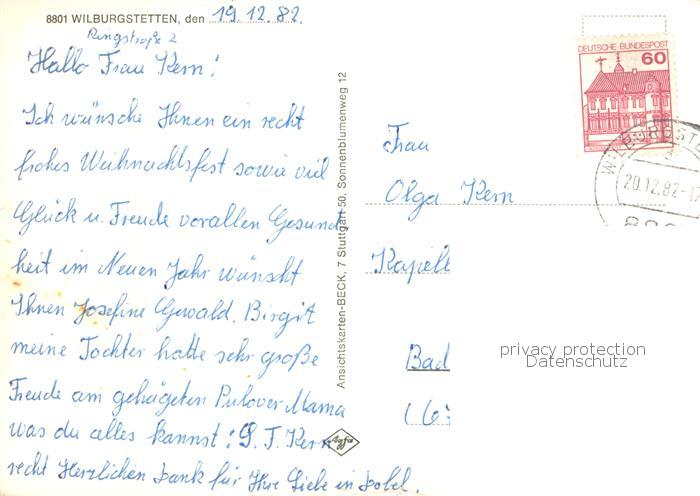 8801 WILBURGSTETTEN, den 19.12.82.
Ringstraße 2
Hallo Frau Kern!
Ich wünsche Ihnen ein recht
frohes Weihnachtsfest sowie viel
Glück u. Freude vorallen Gesund
heit im Neuen Jahr wünscht
Ihnen Josefine Gewald. Birgit
meine Tochter hatte sehr große
Freude am gehägeten Pulover. Mama
was du alles kannst! S. F. Kern
recht Herzlichen Dank für Ihre Liebe in
Ansichtskarten-BECK, 7 Stuttgart 50, Sonnenblumenweg 12
Agfa
DEUTSCHE BUNDESPOST
60
WILBURGSTE
20.12.82-17
880
Frau
Olga Kern
Kapell
Bad
(67
privacy protection
Datenschutz